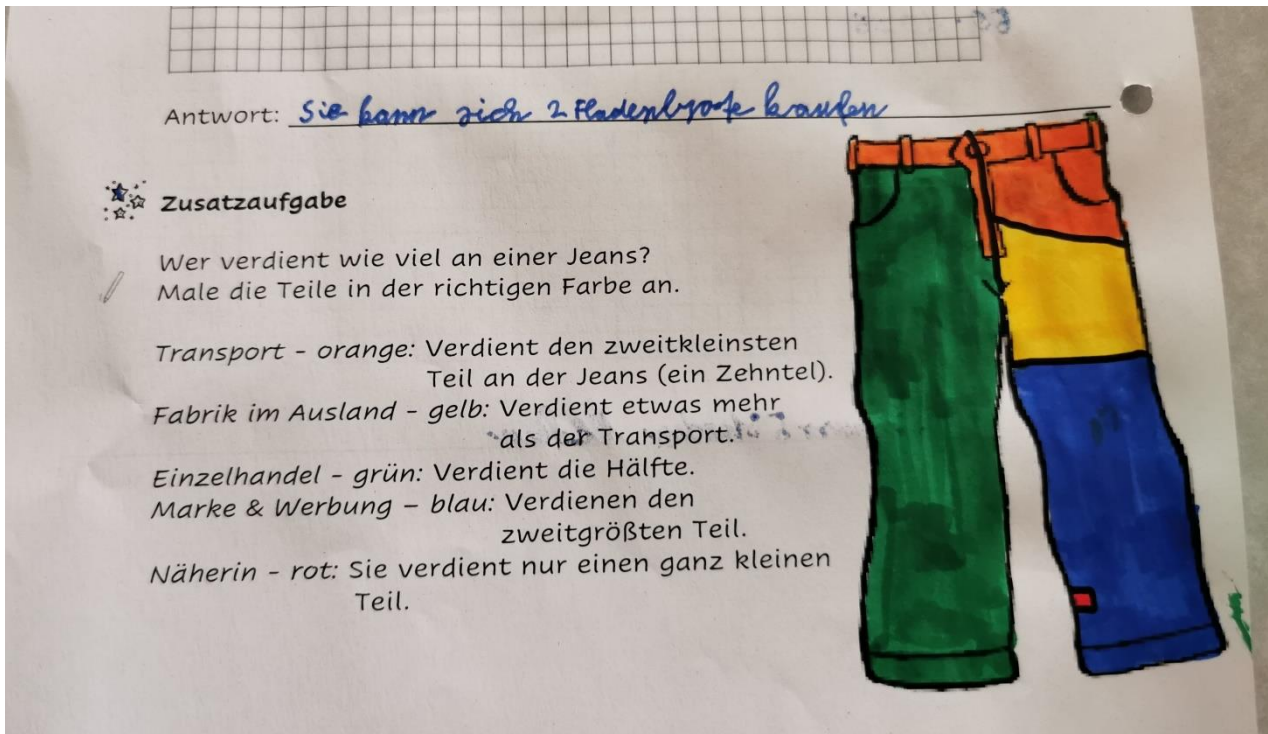 Antwort: Sie kann sich 2 Fladenbrote kaufen
Zusatzaufgabe
Wer verdient wie viel an einer Jeans?
Male die Teile in der richtigen Farbe an.
Transport - orange: Verdient den zweitkleinsten
Teil an der Jeans (ein Zehntel).
Fabrik im Ausland - gelb: Verdient etwas mehr
als der Transport.
Einzelhandel - grün: Verdient die Hälfte.
Marke & Werbung – blau: Verdienen den
zweitgrößten Teil.
Näherin - rot: Sie verdient nur einen ganz kleinen
Teil.